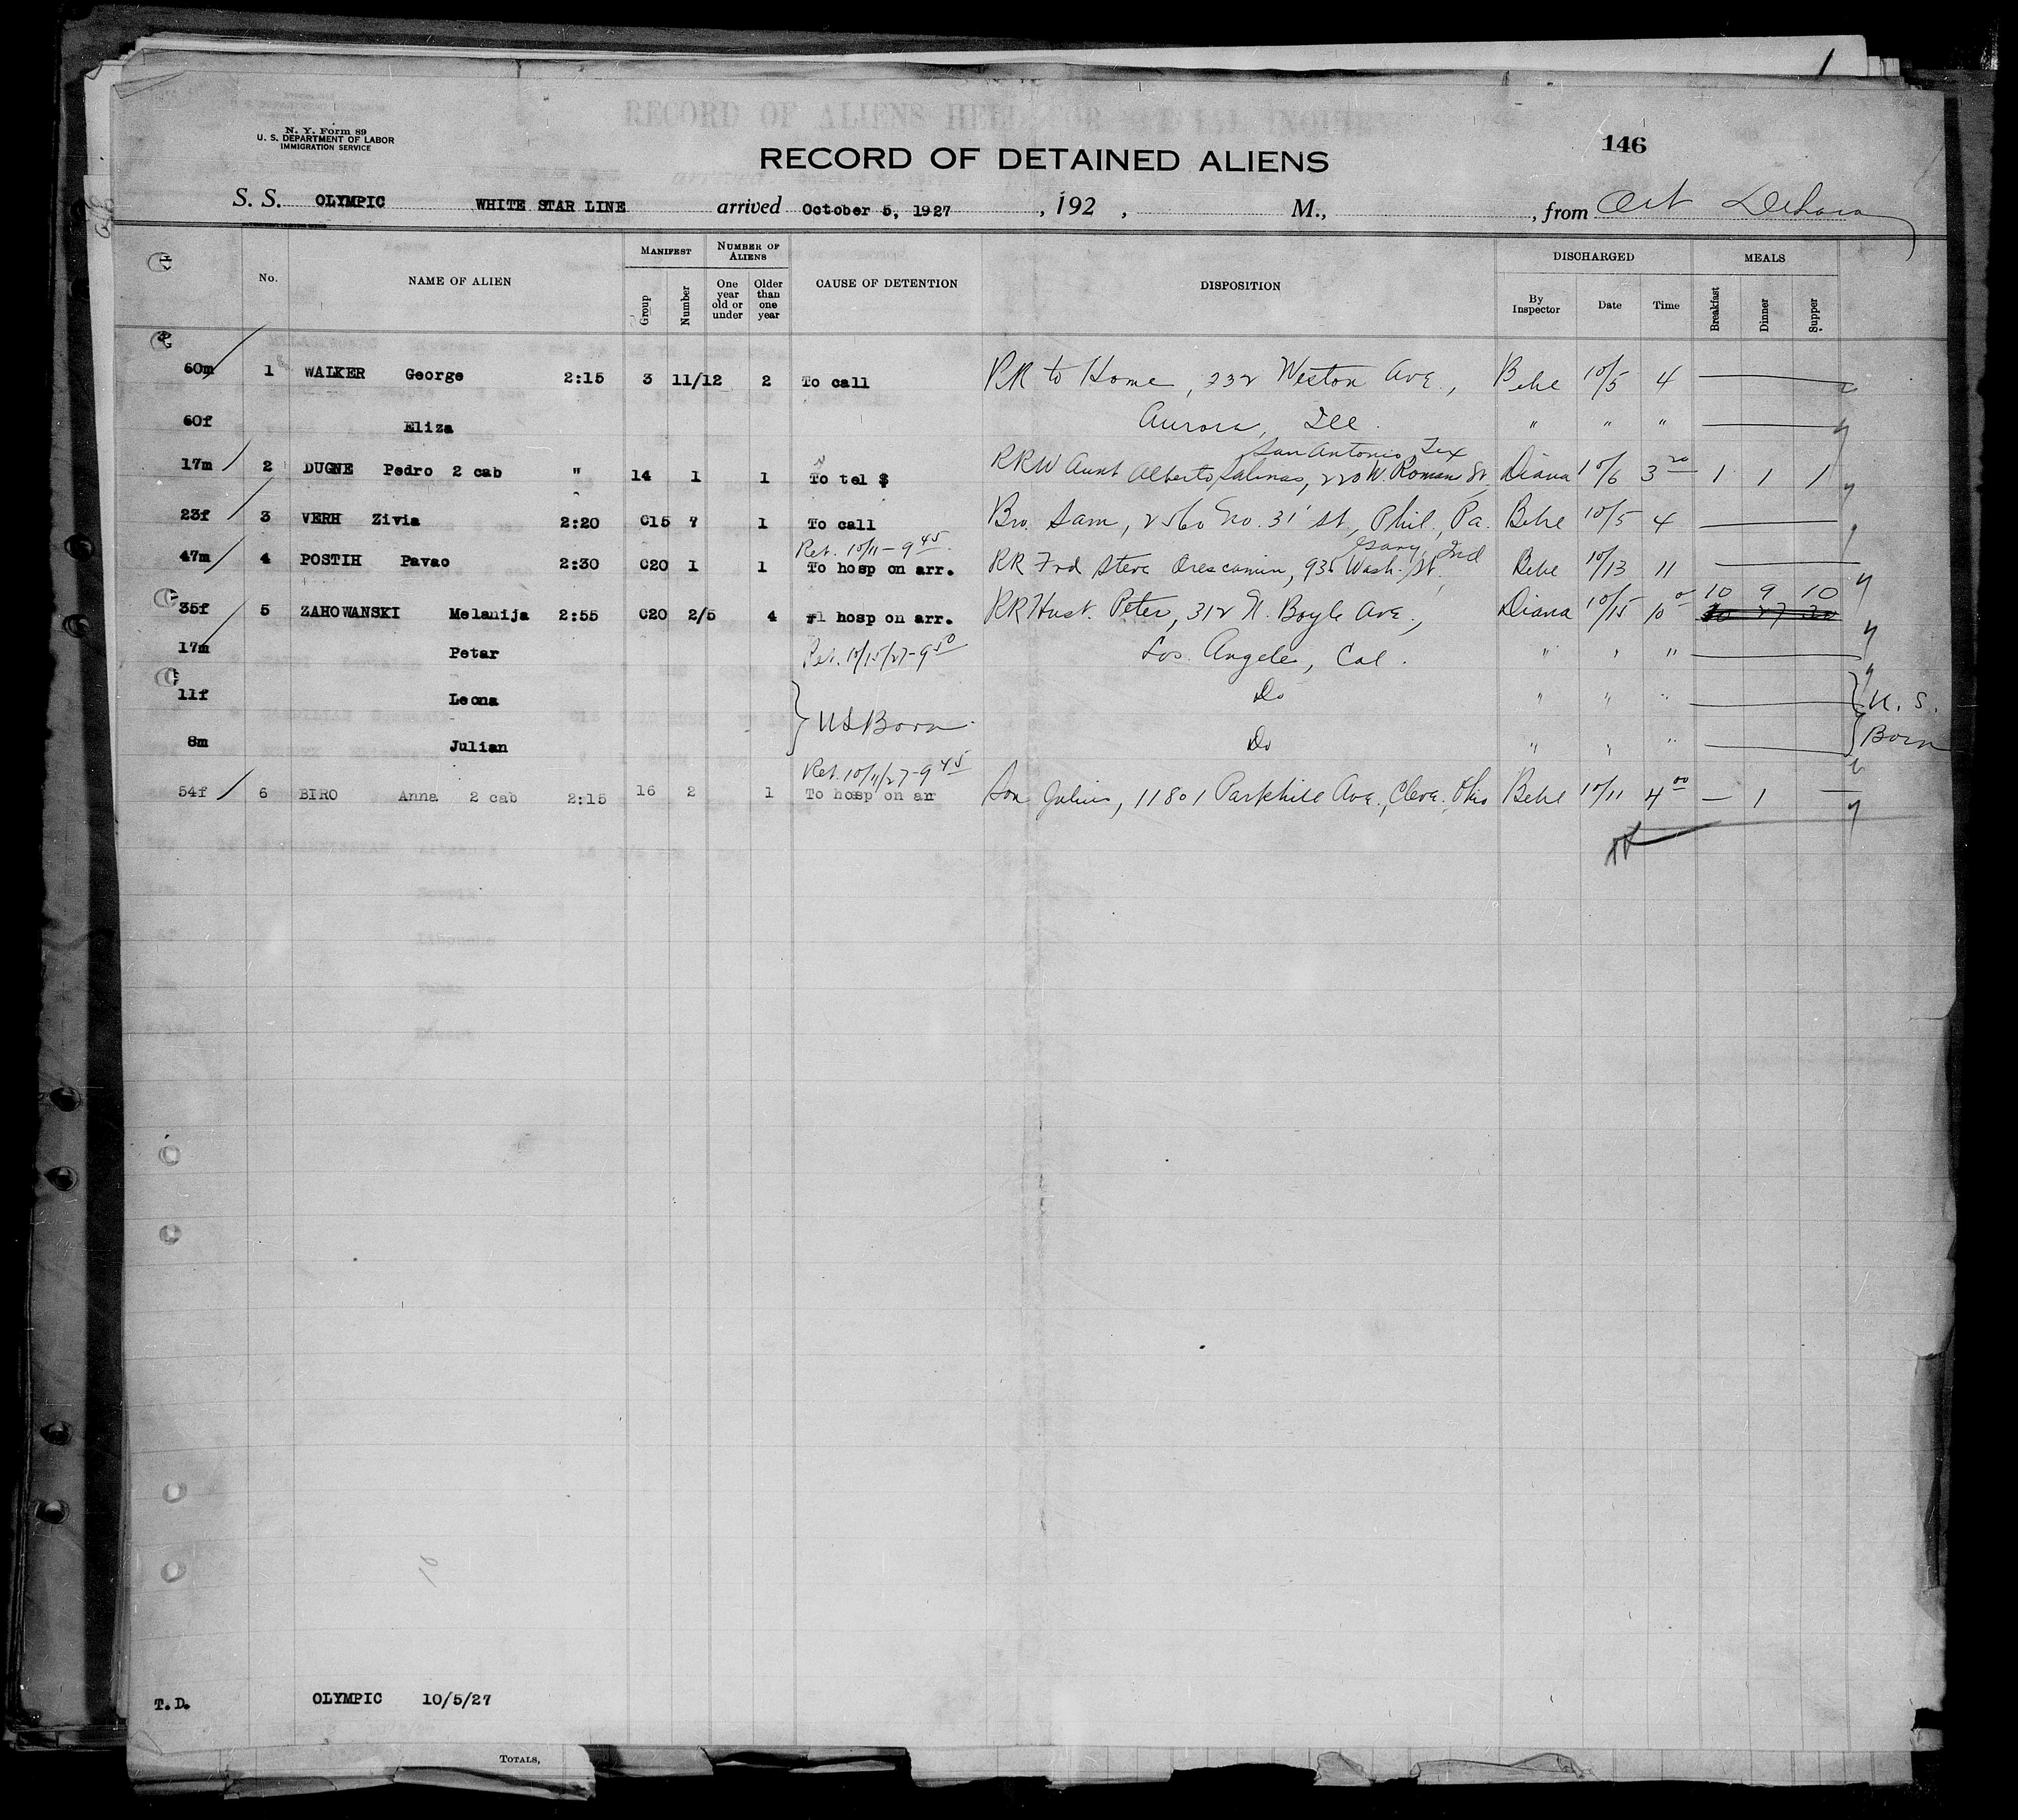 N. Y. Form 89
U. S. DEPARTMENT OF LABOR
IMMIGRATION SERVICE
146
RECORD OF DETAINED ALIENS
S. S. OLYMPIC WHITE STAR LINE arrived October 5, 1927 , 192 , M., from
No. NAME OF ALIEN MANIFEST Group Number NUMBER OF ALIENS One year old or under Older than one year CAUSE OF DETENTION DISPOSITION DISCHARGED By Inspector Date Time MEALS Breakfast Dinner Supper
60m 1 WALKER George 2:15 3 11/12 2 To call RR to Home, 232 Weston Ave., Behe 10/5 4
60f Eliza Aurora, Ill. " " "
San Antonio, Tex
17m 2 DUGNE Pedro 2 cab " 14 1 1 To tel $ RRW Aunt Alberto Salinas, 220 W. Roman St. Diana 10/6 3 20 1 1 1
23f 3 VERH Zivia 2:20 C15 7 1 To call Bro. Sam, 2560 No. 31 St, Phil, Pa. Behe 10/5 4
Ret. 10/11-9 45 Gary, Ind
47m 4 POSTIH Pavao 2:30 C20 1 1 To hosp on arr. RR Frd Steve 935 Wash. St. Behe 10/13 11
10 9 10
35f 5 ZAHOWANSKI Melanija 2:55 C20 2/5 4 #1 hosp on arr. RR Husb. Peter, 312 N. Boyle Ave., Diana 10/15 10
17m Petar Ret. 10/15/27-9 50 Los Angeles, Cal. " " "
11f Leona Do " " " U. S.
US Born
8m Julian Do " " " Born
Ret. 10/11/27-9 45
54f 6 BIRO Anna 2 cab 2:15 16 2 1 To hosp on ar Son Julius, 11801 Parkhill Ave., Cleve. Ohio Behe 10/11 4 00 — 1 —
T.D. OLYMPIC 10/5/27
TOTALS,